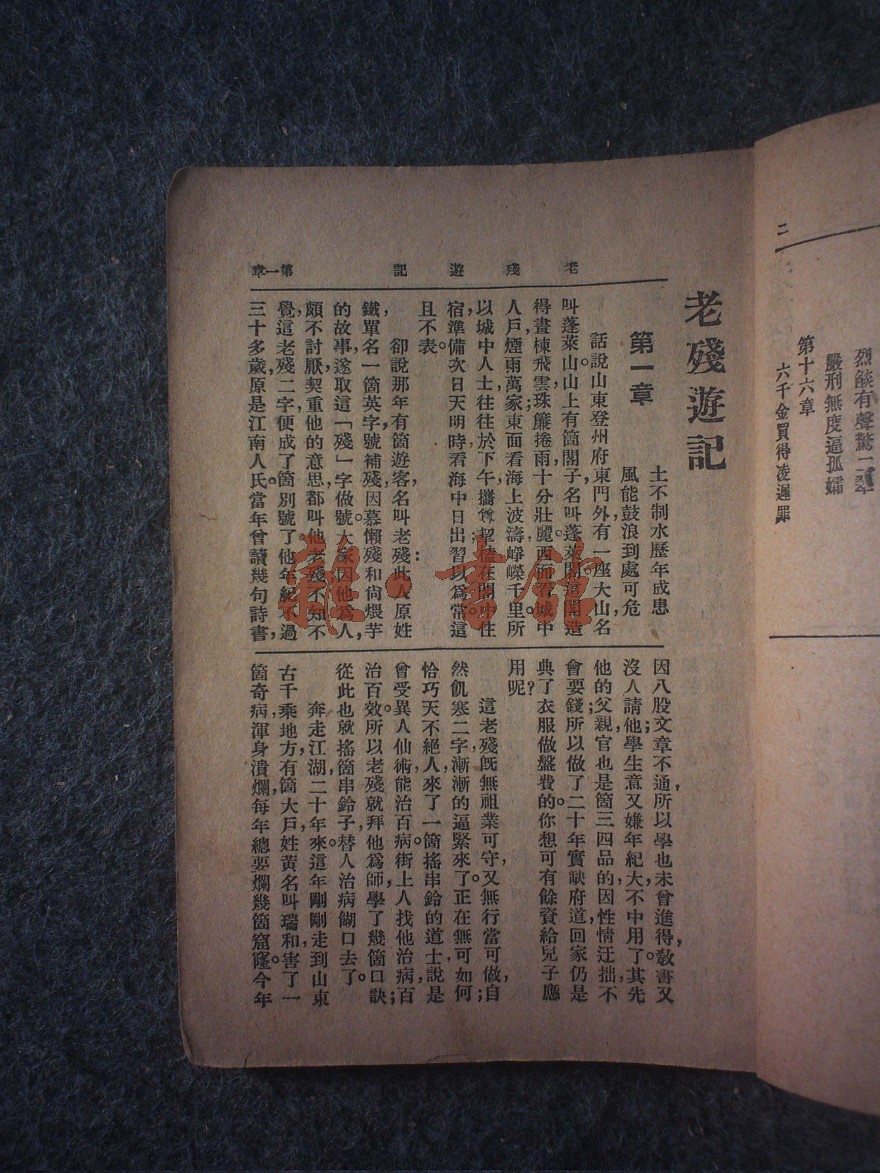 二
烈燄有聲驚二翠
嚴刑無度逼孤孀
第十六章
六千金買得凌遲罪
老殘遊記
老殘遊記　第一章
第一章
土不制水歷年成患
風能鼓浪到處可危
話說山東登州府東門外有一座大山,名
叫蓬萊山。山上有箇閣子,名叫蓬萊閣。這閣造
得畫棟飛雲,珠簾捲雨,十分壯麗。西面看城中
人戶,煙雨萬家;東面看海上波濤,崢嶸千里。所
以城中人士往往於下午攜尊挈榼,在閣中住
宿,準備次日天明時看海中日出,習以爲常。這
且不表。
卻說那年有箇遊客,名叫老殘。此人原姓
鐵,單名一箇英字,號補殘。因慕懶殘和尚煨芋
的故事,遂取這「殘」字做號。大家因他爲人
頗不討厭,契重他的意思,都叫他老殘。不知不
覺,這老殘二字便成了箇別號了。他年紀不過
三十多歲,原是江南人氏。當年曾讀幾句詩書,
因八股文章不通,所以學也未曾進得,敎書又
沒人請他,學生意又嫌年紀大,不中用了。其先
他的父親官也是箇三四品的,因性情迂拙,不
會要錢;所以做了二十年實缺府道,回家仍是
典了衣服做盤費的。你想可有餘資給兒子應
用呢?
這老殘旣無祖業可守,又無行當可做,自
然飢寒二字漸漸的逼緊來了。正在無可如何,
恰巧天不絕人,來了一箇搖串鈴的道士,說是
曾受異人仙術,能治百病。街上人找他治病,百
治百效。所以老殘就拜他爲師,學了幾箇口訣;
從此也就搖箇串鈴子替人治病餬口去了。
奔走江湖二十年來,這年剛剛走到山東
古千乘地方,有箇大戶,姓黄名叫瑞和,害了一
箇奇病,渾身潰爛,每年總要爛幾箇窟窿。今年
雜·書館